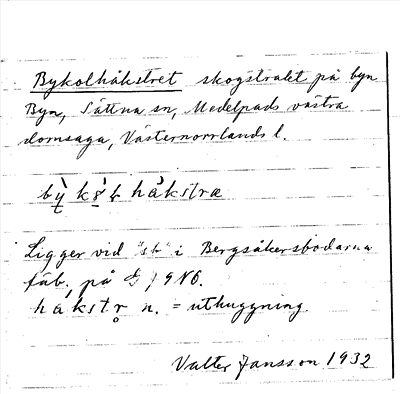 Bykolhåkstret skogstrakt på byn
Byn, Sättna sn, Medelpads västra
domsaga, Västernorrlands l.
håkstræ
Ligger vid "sk" i Bergsåkersbodarna
fäb. på
håkstr n. = uthuggning.
Valter Jansson 1932